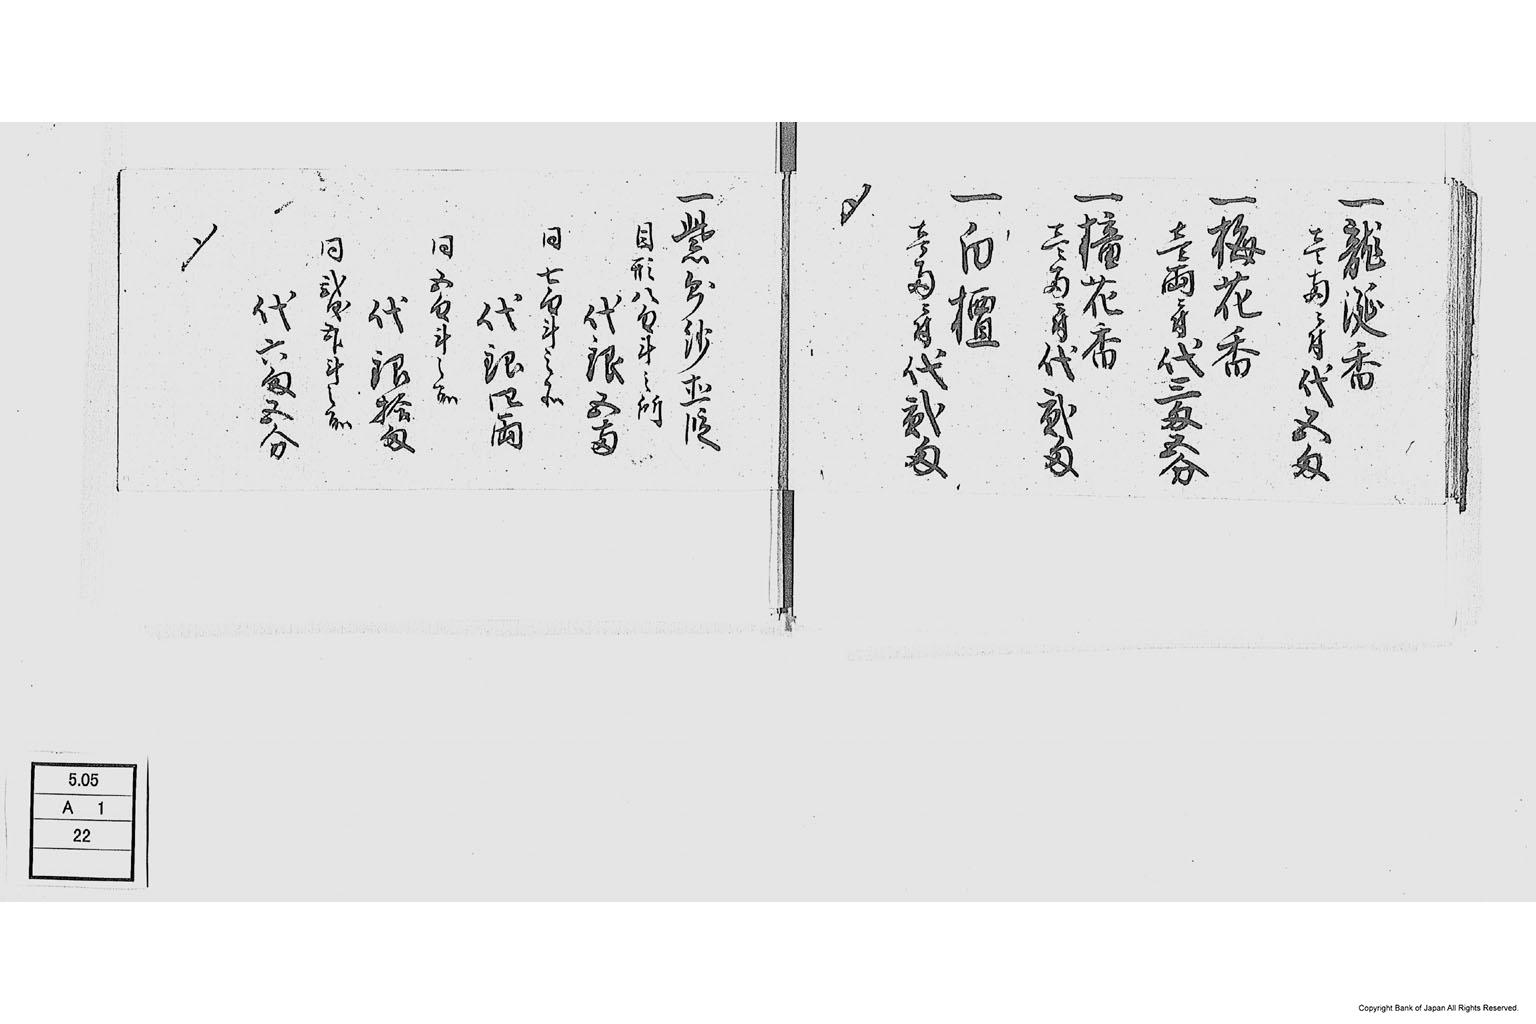 一龍涎香
壱両ニ付代五匁
一梅花香
壱両ニ付代三匁五分
一檀花香
壱両ニ付代弐匁
一白檀
壱両ニ付代弐匁
〆
一紫金沙
目形八匁斗之所
代銀五両
同七匁斗之分
代銀四両
同五匁斗之分
代銀拾匁
同
代六匁五分
〆
5.05
A 1
22
Copyright Bank of Japan All Rights Reserved.